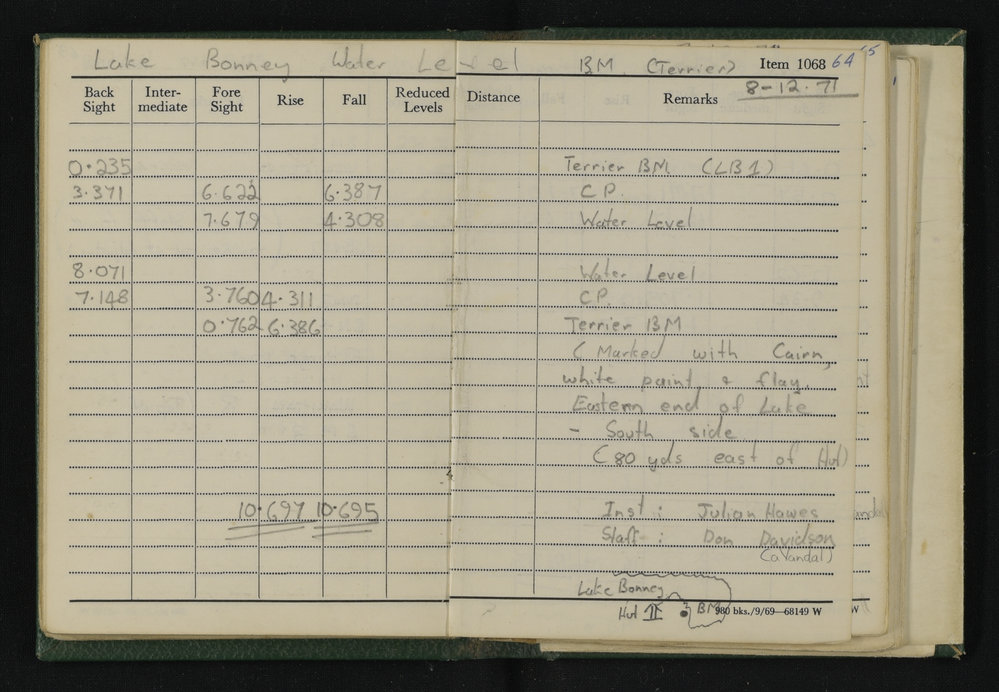 Lake Bonney Water Level BM (Terrier) Item 1068 64 65
8-12.71
Back Sight Inter-mediate Fore Sight Rise Fall Reduced Levels Distance Remarks
0.235 Terrier BM (LB1)
3.371 6.622 6.387 C.P.
7.679 4.308 Water Level
8.071 Water Level
7.148 3.760 4.311 C.P.
0.762 6.386 Terrier BM
(Marked with Cairn,
white paint & flag.
Eastern end of Lake
- South side
(80 yds east of Hut)
10.697 10.695 Inst: Julian Hawes
Staff: Don Davidson
(a Vandal)
Lake Bonney
Hut II BM 980 bks./9/69—68149 W